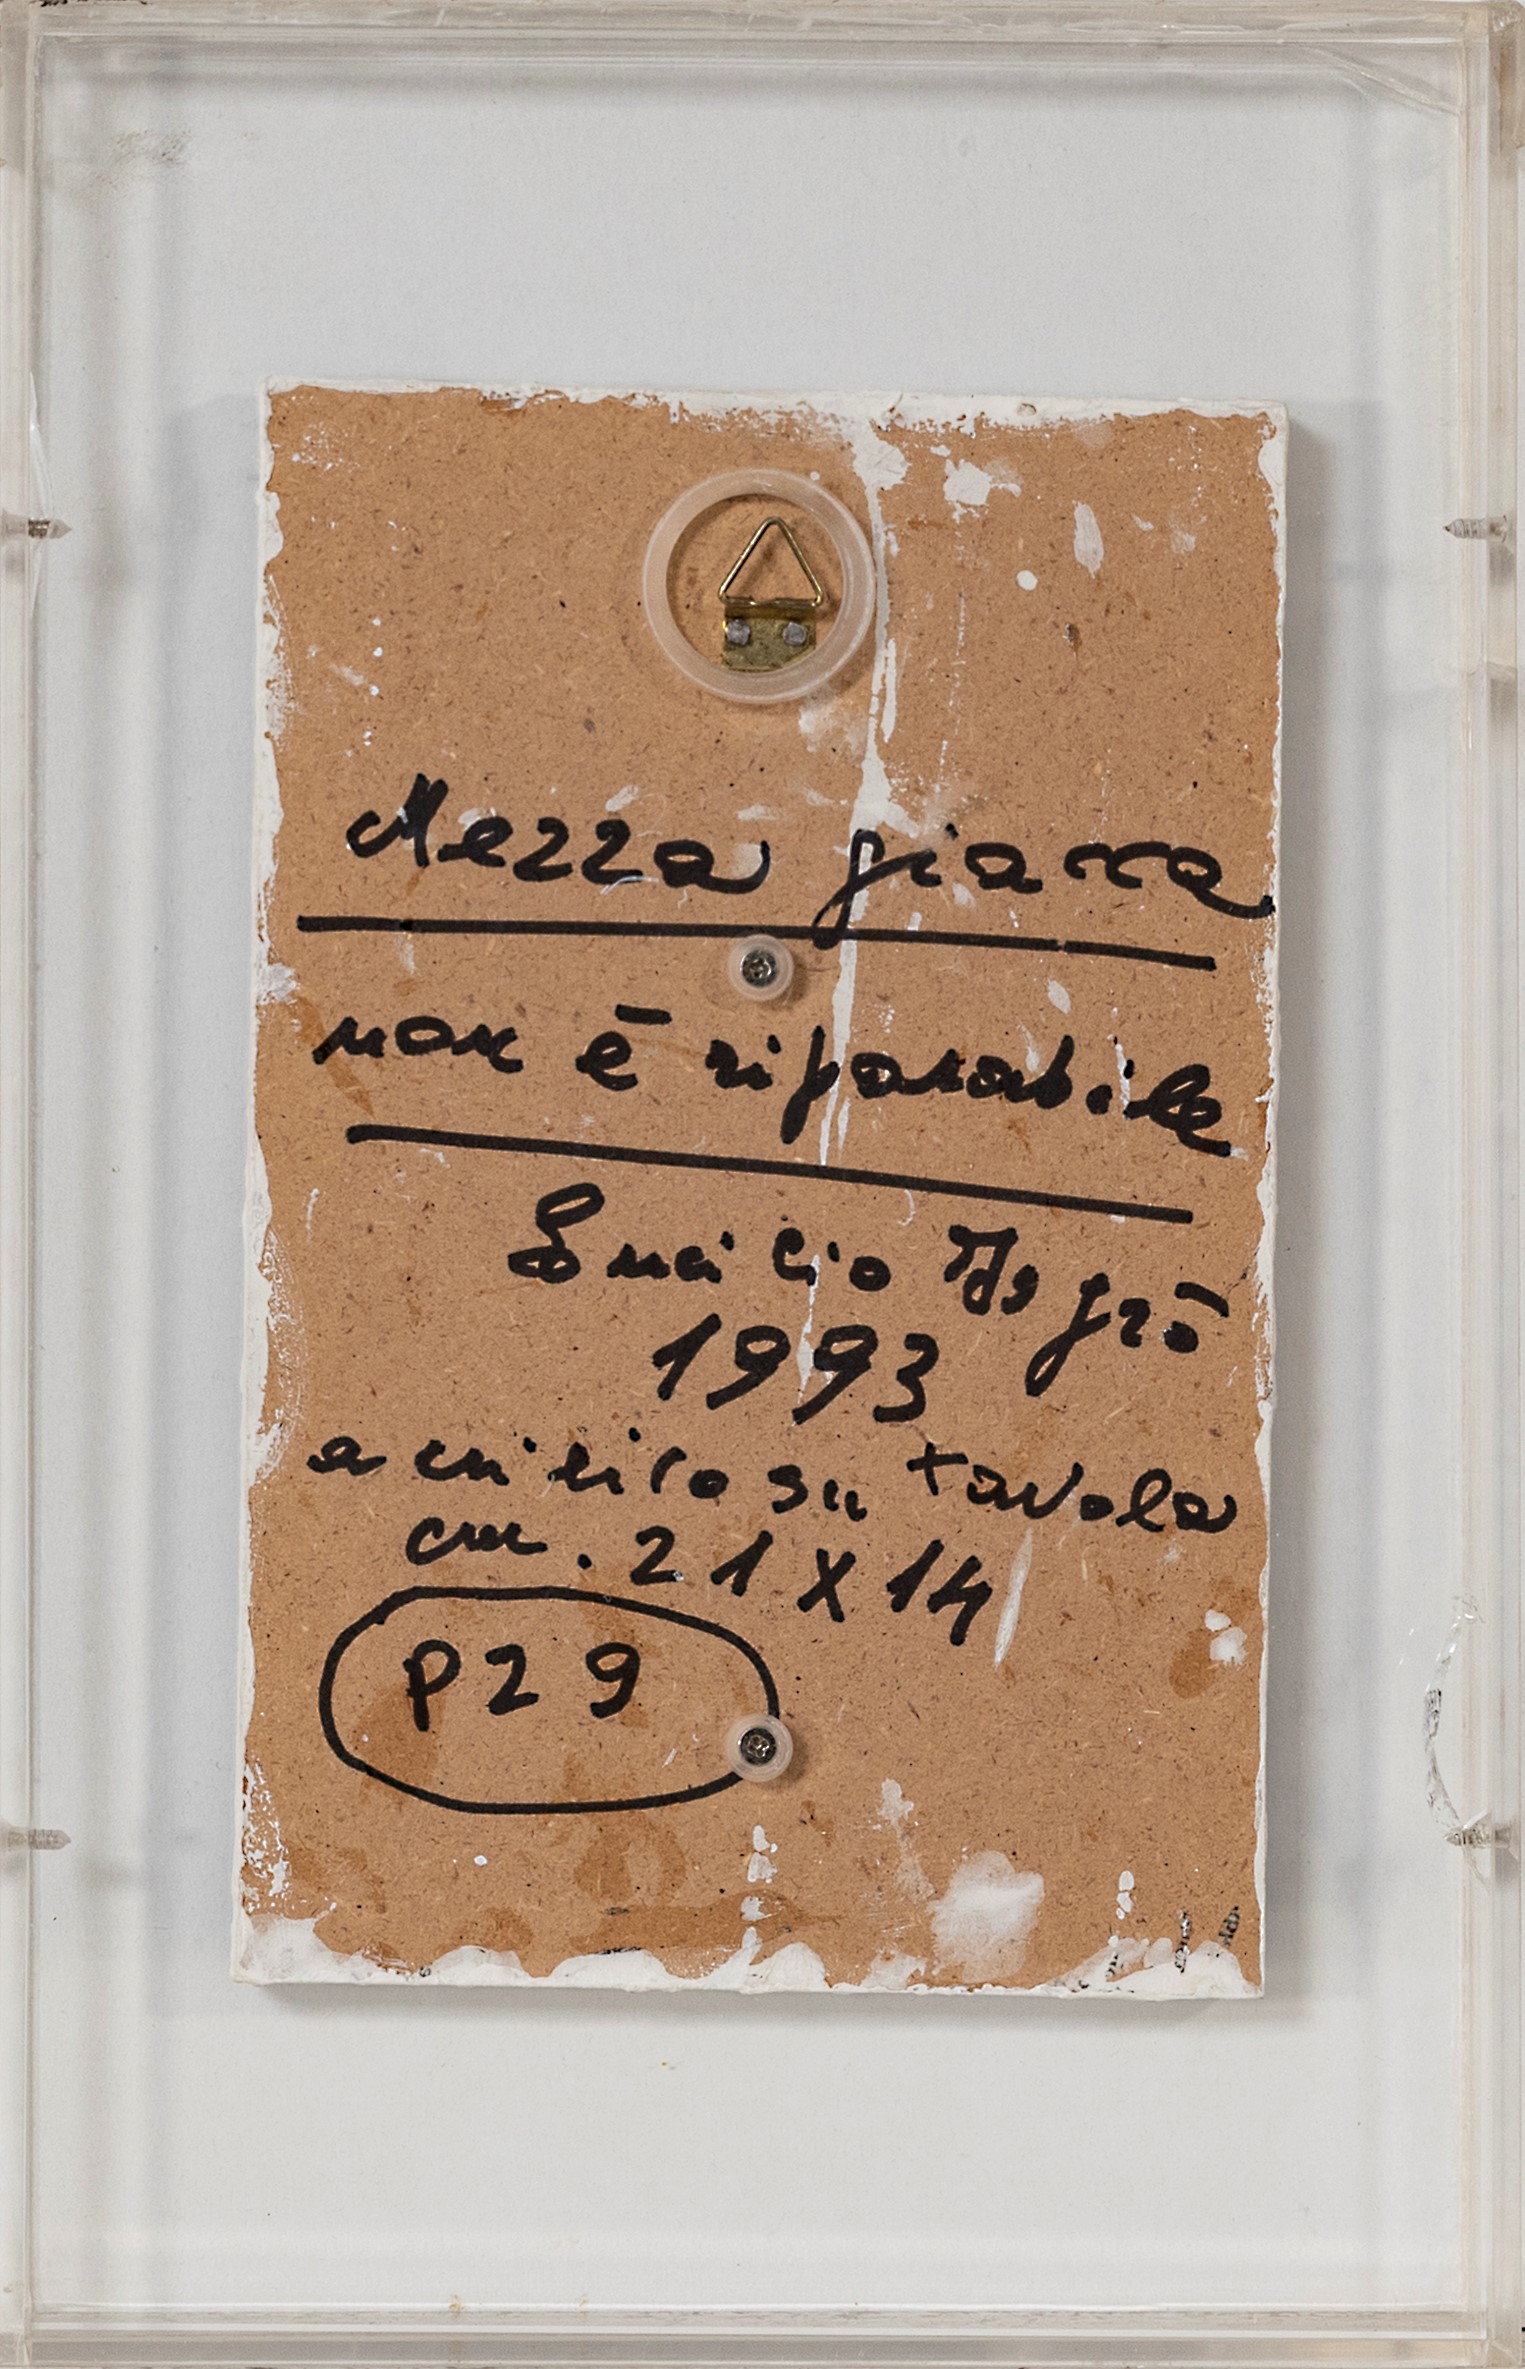 Mezza giara
non è riparabile
Emilio Isgrò
1993
acrilico su tavola
cm. 21 x 14
P29